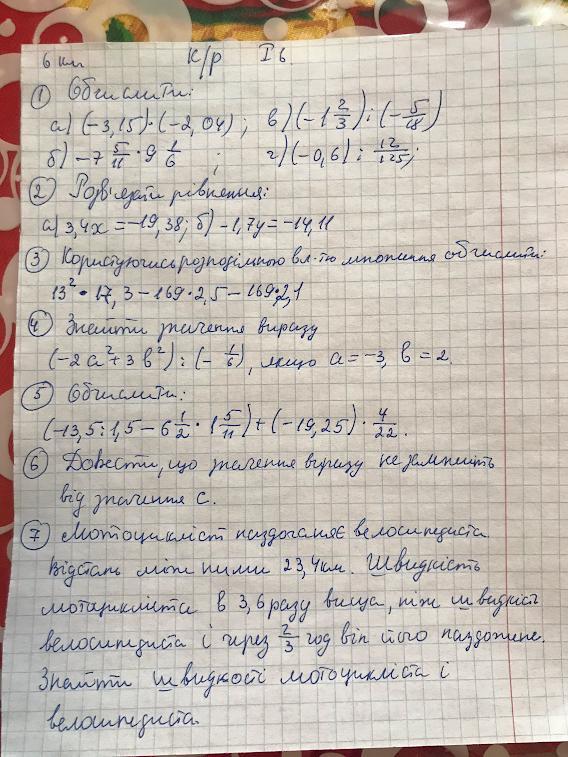 6 кл К/р І в.
① Обчислити:
а) (-3,15)·(-2,04); в) (-1 2/3) : (-5/18)
б) -7 5/11 · 9 1/6 ; г) (-0,6) : 12/125;
② Розв'язати рівняння:
а) 3,4х = -19,38; б) -1,7у = -14,11
③ Користуючись розподільною вл-тю множення обчислити:
13² · 17,3 - 169 · 2,5 - 169 · 2,1
④ Знайти значення виразу
(-2а² + 3в²) : (-1/6), якщо а = -3, в = 2.
⑤ Обчислити:
(-13,5 : 1,5 - 6 1/2 · 1 5/11) + (-19,25) · 4/22.
⑥ Довести, що значення виразу не залежить
від значення с.
⑦ Мотоцикліст наздоганяє велосипедиста.
Відстань між ними 23,4км. Швидкість
мотоцикліста в 3,6 разу вища, ніж швидкість
велосипедиста і через 2/3 год він його наздожене.
Знайти швидкості мотоцикліста і
велосипедиста.